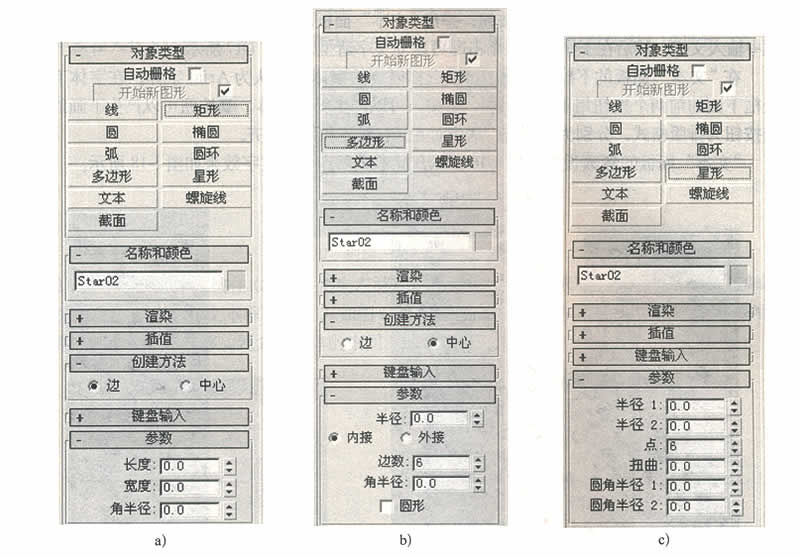 - 对象类型
自动栅格
开始新图形
线 矩形
圆 椭圆
弧 圆环
多边形 星形
文本 螺旋线
截面
- 名称和颜色
Star02
+ 渲染
+ 插值
- 创建方法
边 中心
+ 键盘输入
- 参数
长度: 0.0
宽度: 0.0
角半径: 0.0
a)
- 对象类型
自动栅格
开始新图形
线 矩形
圆 椭圆
弧 圆环
多边形 星形
文本 螺旋线
截面
- 名称和颜色
Star02
+ 渲染
+ 插值
- 创建方法
边 中心
+ 键盘输入
- 参数
半径: 0.0
内接 外接
边数: 6
角半径: 0.0
圆形
b)
- 对象类型
自动栅格
开始新图形
线 矩形
圆 椭圆
弧 圆环
多边形 星形
文本 螺旋线
截面
- 名称和颜色
Star02
+ 渲染
+ 插值
+ 键盘输入
- 参数
半径 1: 0.0
半径 2: 0.0
点: 6
扭曲: 0.0
圆角半径 1: 0.0
圆角半径 2: 0.0
c)